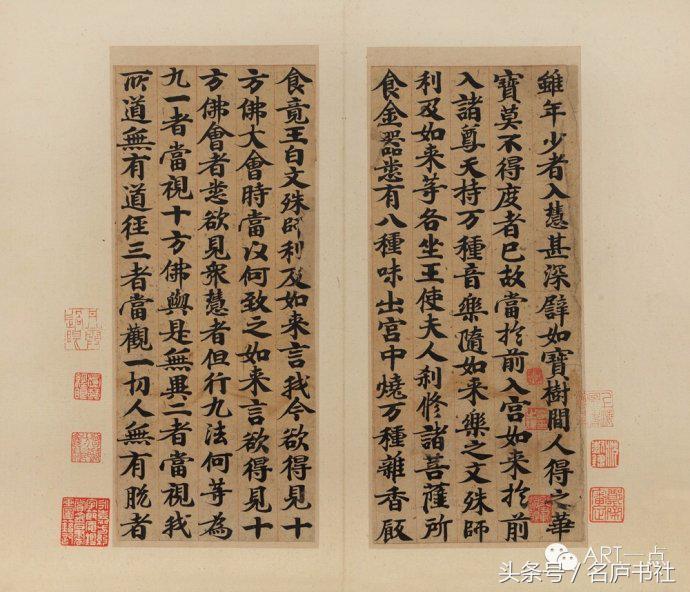 雖年少者入慧甚深譬如寶樹間人得之華
寶莫不得度者巳故當扵前入宫如来扵前
入諸尊天持万種音樂隨如来樂之文殊師
利及如来等各坐王使夫人利修諸菩薩所
食金器悉有八種味出宫中燒万種雜香厭
食竟王白文殊師利及如来言我今欲得見十
方佛大會時當以何致之如来言欲得見十
方佛會者悉欲見衆慧者但行九法何等為
九一者當視十方佛與是無異二者當視我
所道無有道径三者當觀一切人無有脫者
ART一点
头条号/名庐书社